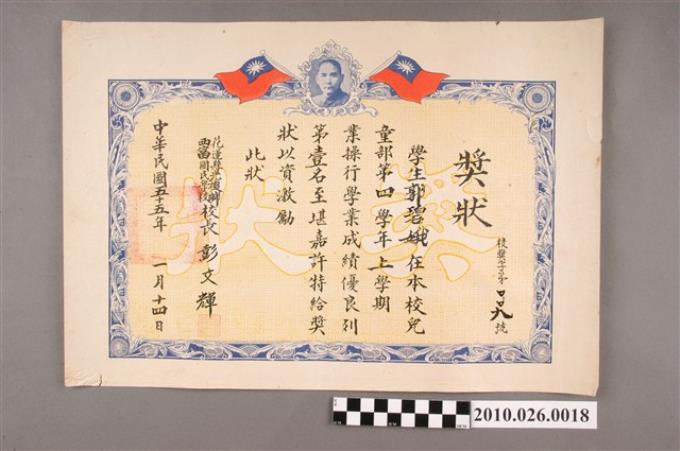 獎狀
校獎字第 號
學生郭碧娥在本校兒
童部第四學年上學期
業操行學業成績優良列
第壹名至堪嘉許特給獎
狀以資激勵
此狀
花蓮縣 鄉
國民學校校長 彭文輝
中華民國五十五年 一月十四日
獎狀
2010.026.0018